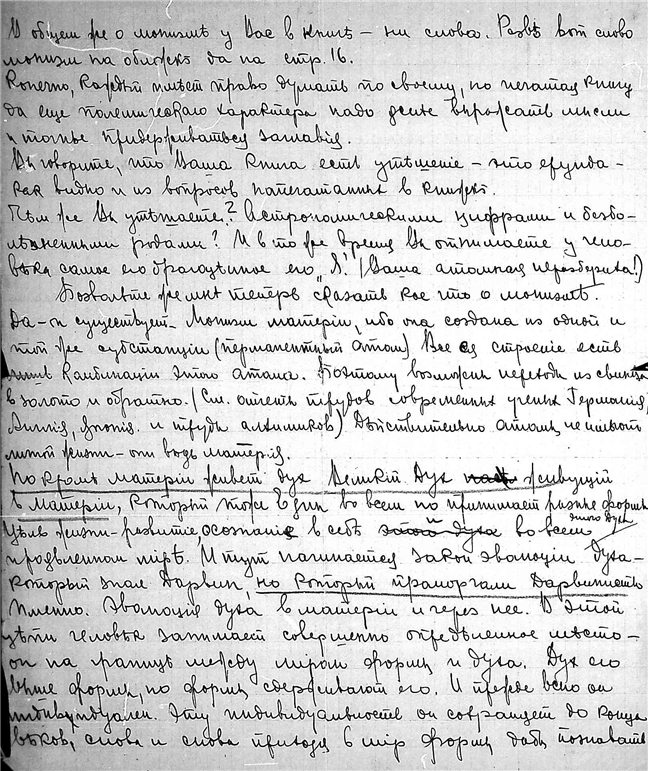 В общем же о монизмѣ у Вас в книгѣ – ни слова. Развѣ вот слово
монизм на обложкѣ да на стр. 16.
Конечно, каждый имѣет право думать по своему, но печатая книгу
да еще полемическаго характера надо яснѣе выражать мысли
и точнѣе придерживаться заглавія.
Вы говорите, что Ваша книга есть утѣшение – это ерунда –
как видно и из вопросов напечатанных в книжкѣ.
Чѣм же Вы утѣшаете? Астрономическими цифрами и безбо-
лѣзненными родами? И в то же время Вы отнимаете у чело-
вѣка самое его драгоцѣнное его „Я". (Ваша атомная неразбериха!)
Позвольте же мнѣ теперь сказать кое что о монизмѣ.
Да – он существует. Монизм матеріи, ибо она создана из одной и
той же субстанціи (перманентный атом) Все ея строение есть
лишь комбинаціи этого атома. Поэтому возможны переходы из свинца
в золото и обратно. (См. опыты трудов современных ученых Германіи,
Англіи, Японіи и труды алхимиков) Дѣйствительно атомы не имѣют
личной жизни – они водь матерія.
Но кромѣ матеріи живет дух Великій Дух живущій
в матеріи, который тоже Един во всем но принимает разные формы
Цѣль жизни – развитие, осознание в себѣ этого духа во всем
проявленном мірѣ. И тут начинается закон эволюціи духа –
который знал Дарвин, но который проморгали Дарвинисты
Именно. Эволюція духа в матеріи и через нее. В этой
цѣпи человѣк занимает совершенно опредѣленное мѣсто –
он на границѣ между міром формы и духа. Дух его
выше формы, но формы сдерживают его. И прежде всего он
индивидуален. Эту индивидуальность он сохраняет до конца
вѣков, снова и снова приходя в мір формы дабы познавать